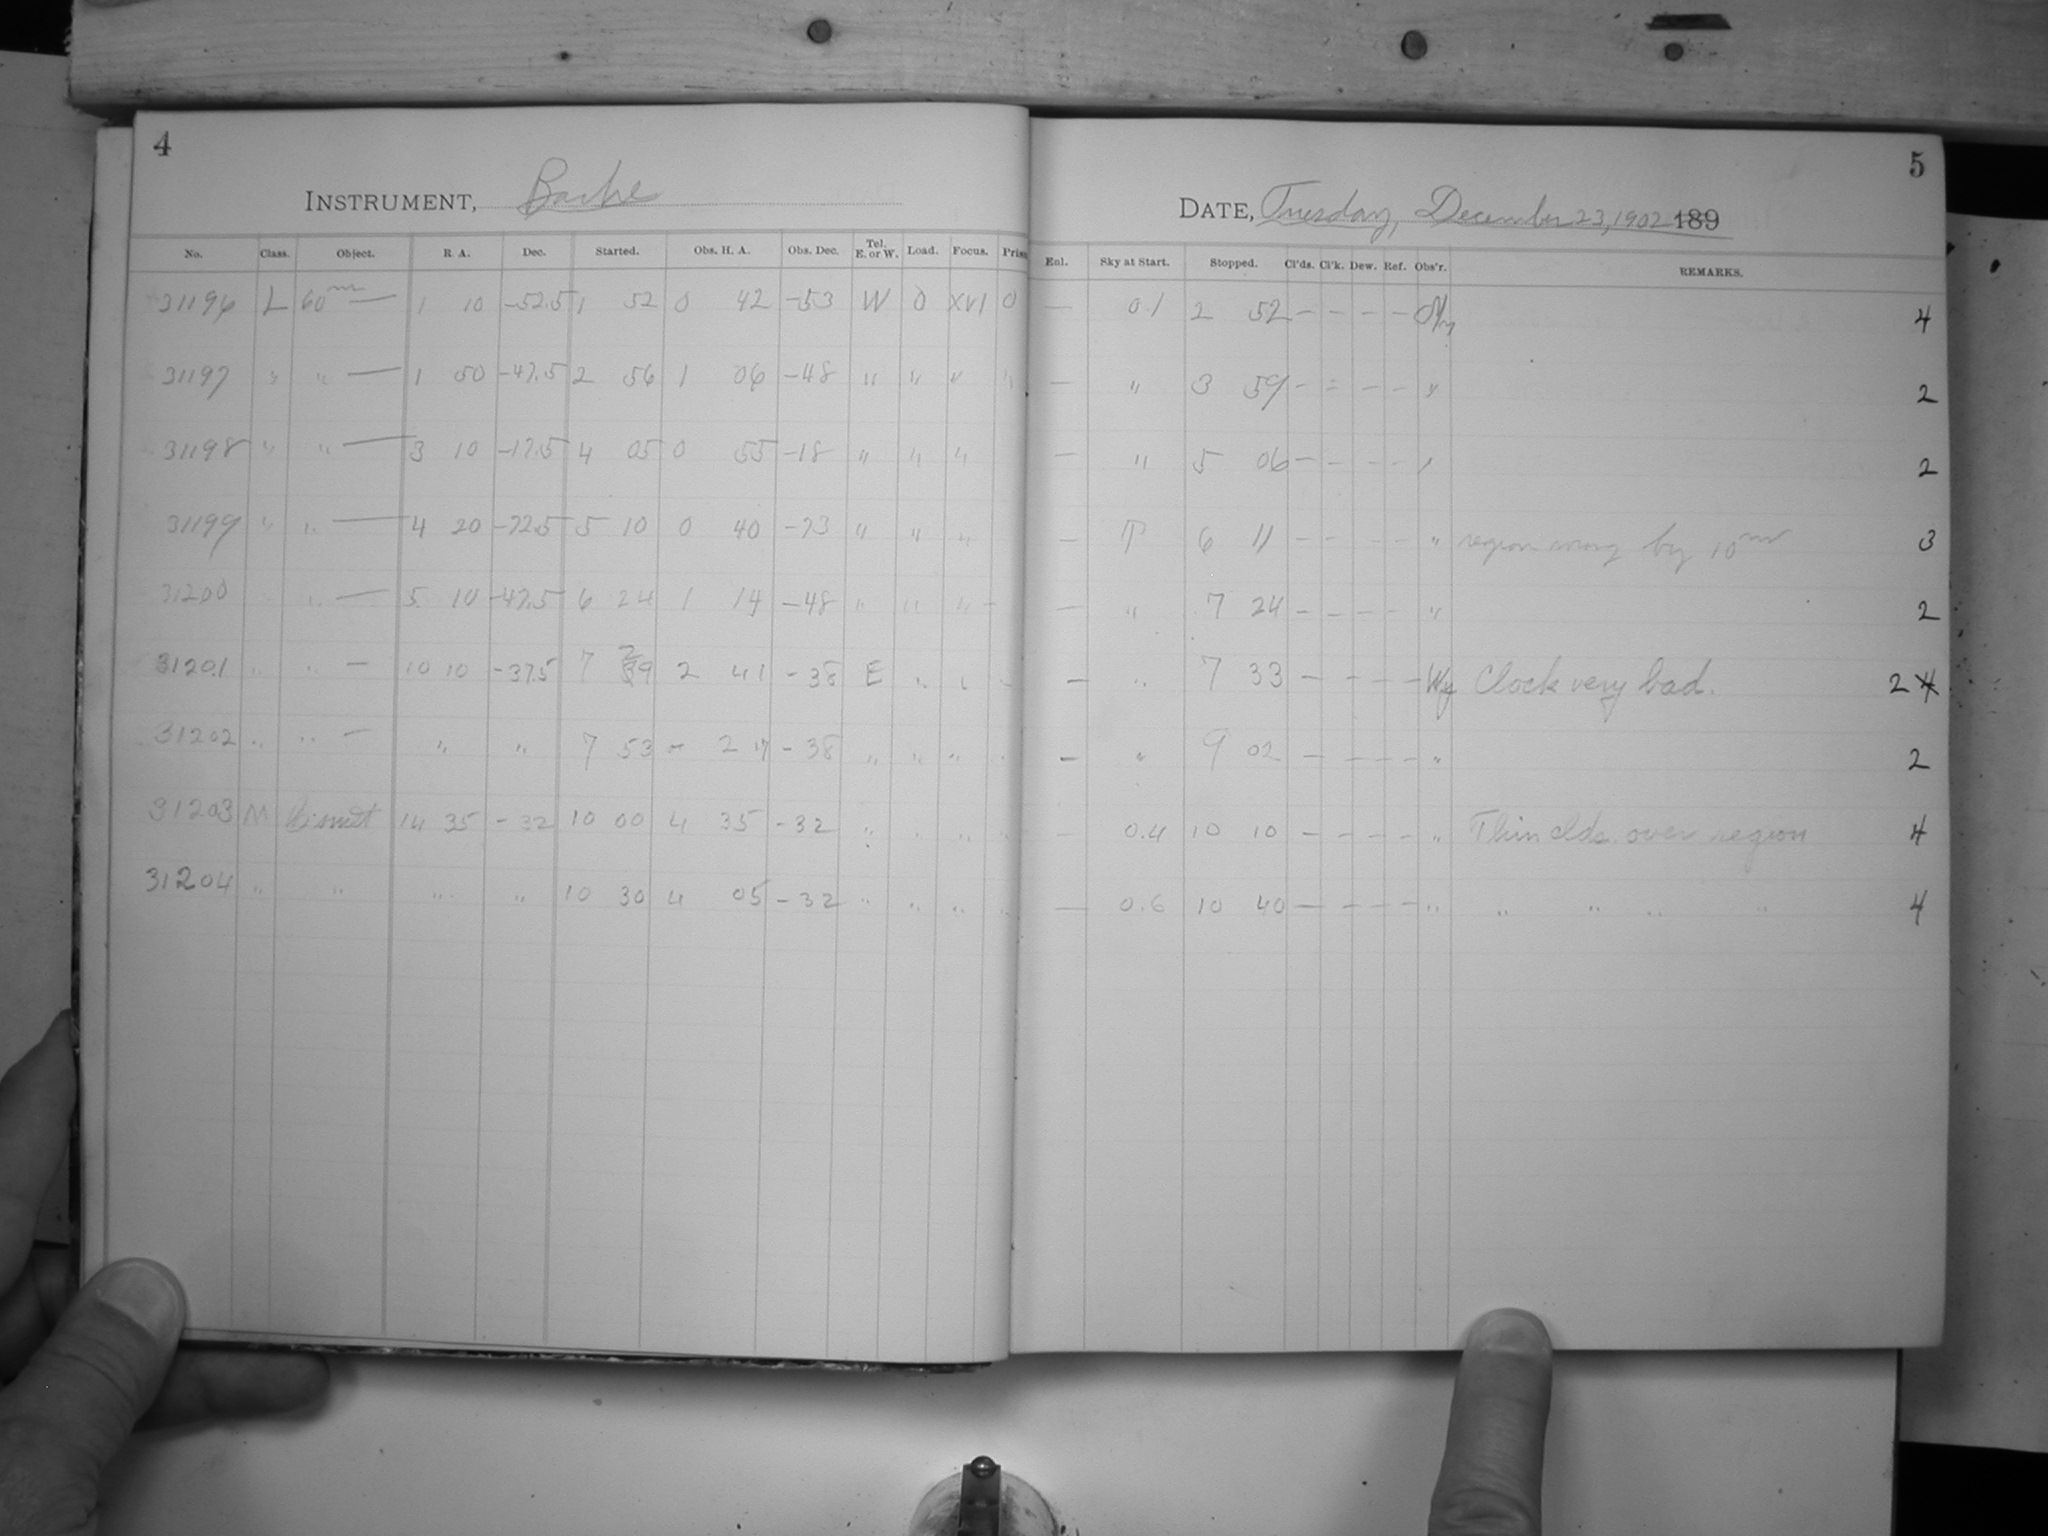 4
INSTRUMENT, Bache
No. Class. Object. R. A. Dec. Started. Obs. H. A. Obs. Dec. Tel. E. or W. Load. Focus. Pris
31196 L 60m — 1 10 -52.5 1 52 0 42 -53 W 0 XVI 0
31197 " " — 1 50 -47.5 2 56 1 06 -48 " " " "
31198 " " — 3 10 -17.5 4 05 0 55 -18 " " "
31199 " " — 4 20 -72.5 5 10 0 40 -73 " " "
31200 " — 5 10 -47.5 6 24 1 14 -48 " " " -
31201 " " — 10 10 -37.5 7 29 2 41 -38 E " " -
31202 " " — " " 7 53 - 2 17 -38 " " " "
31203 M 14 35 -32 10 00 4 35 -32 " " " "
31204 " " " " 10 30 4 05 -32 " " " "
5
DATE, Tuesday, December 23, 1902 189
Enl. Sky at Start. Stopped. Cl'ds. Cl'k. Dew. Ref. Obs'r. REMARKS.
— 0.1 2 52 — — — — 4
— " 3 59 - = — — " 2
— " 5 06 — — — — " 2
— T 6 11 — — — — " region wrong by 10m 3
— " 7 24 — — — — " 2
— " 7 33 — — — — Wy Clock very bad. 2 4
— " 9 02 — — — — " 2
— 0.4 10 10 — — — — " Thin clds. over region 4
— 0.6 10 40 — — — — " " " " " 4